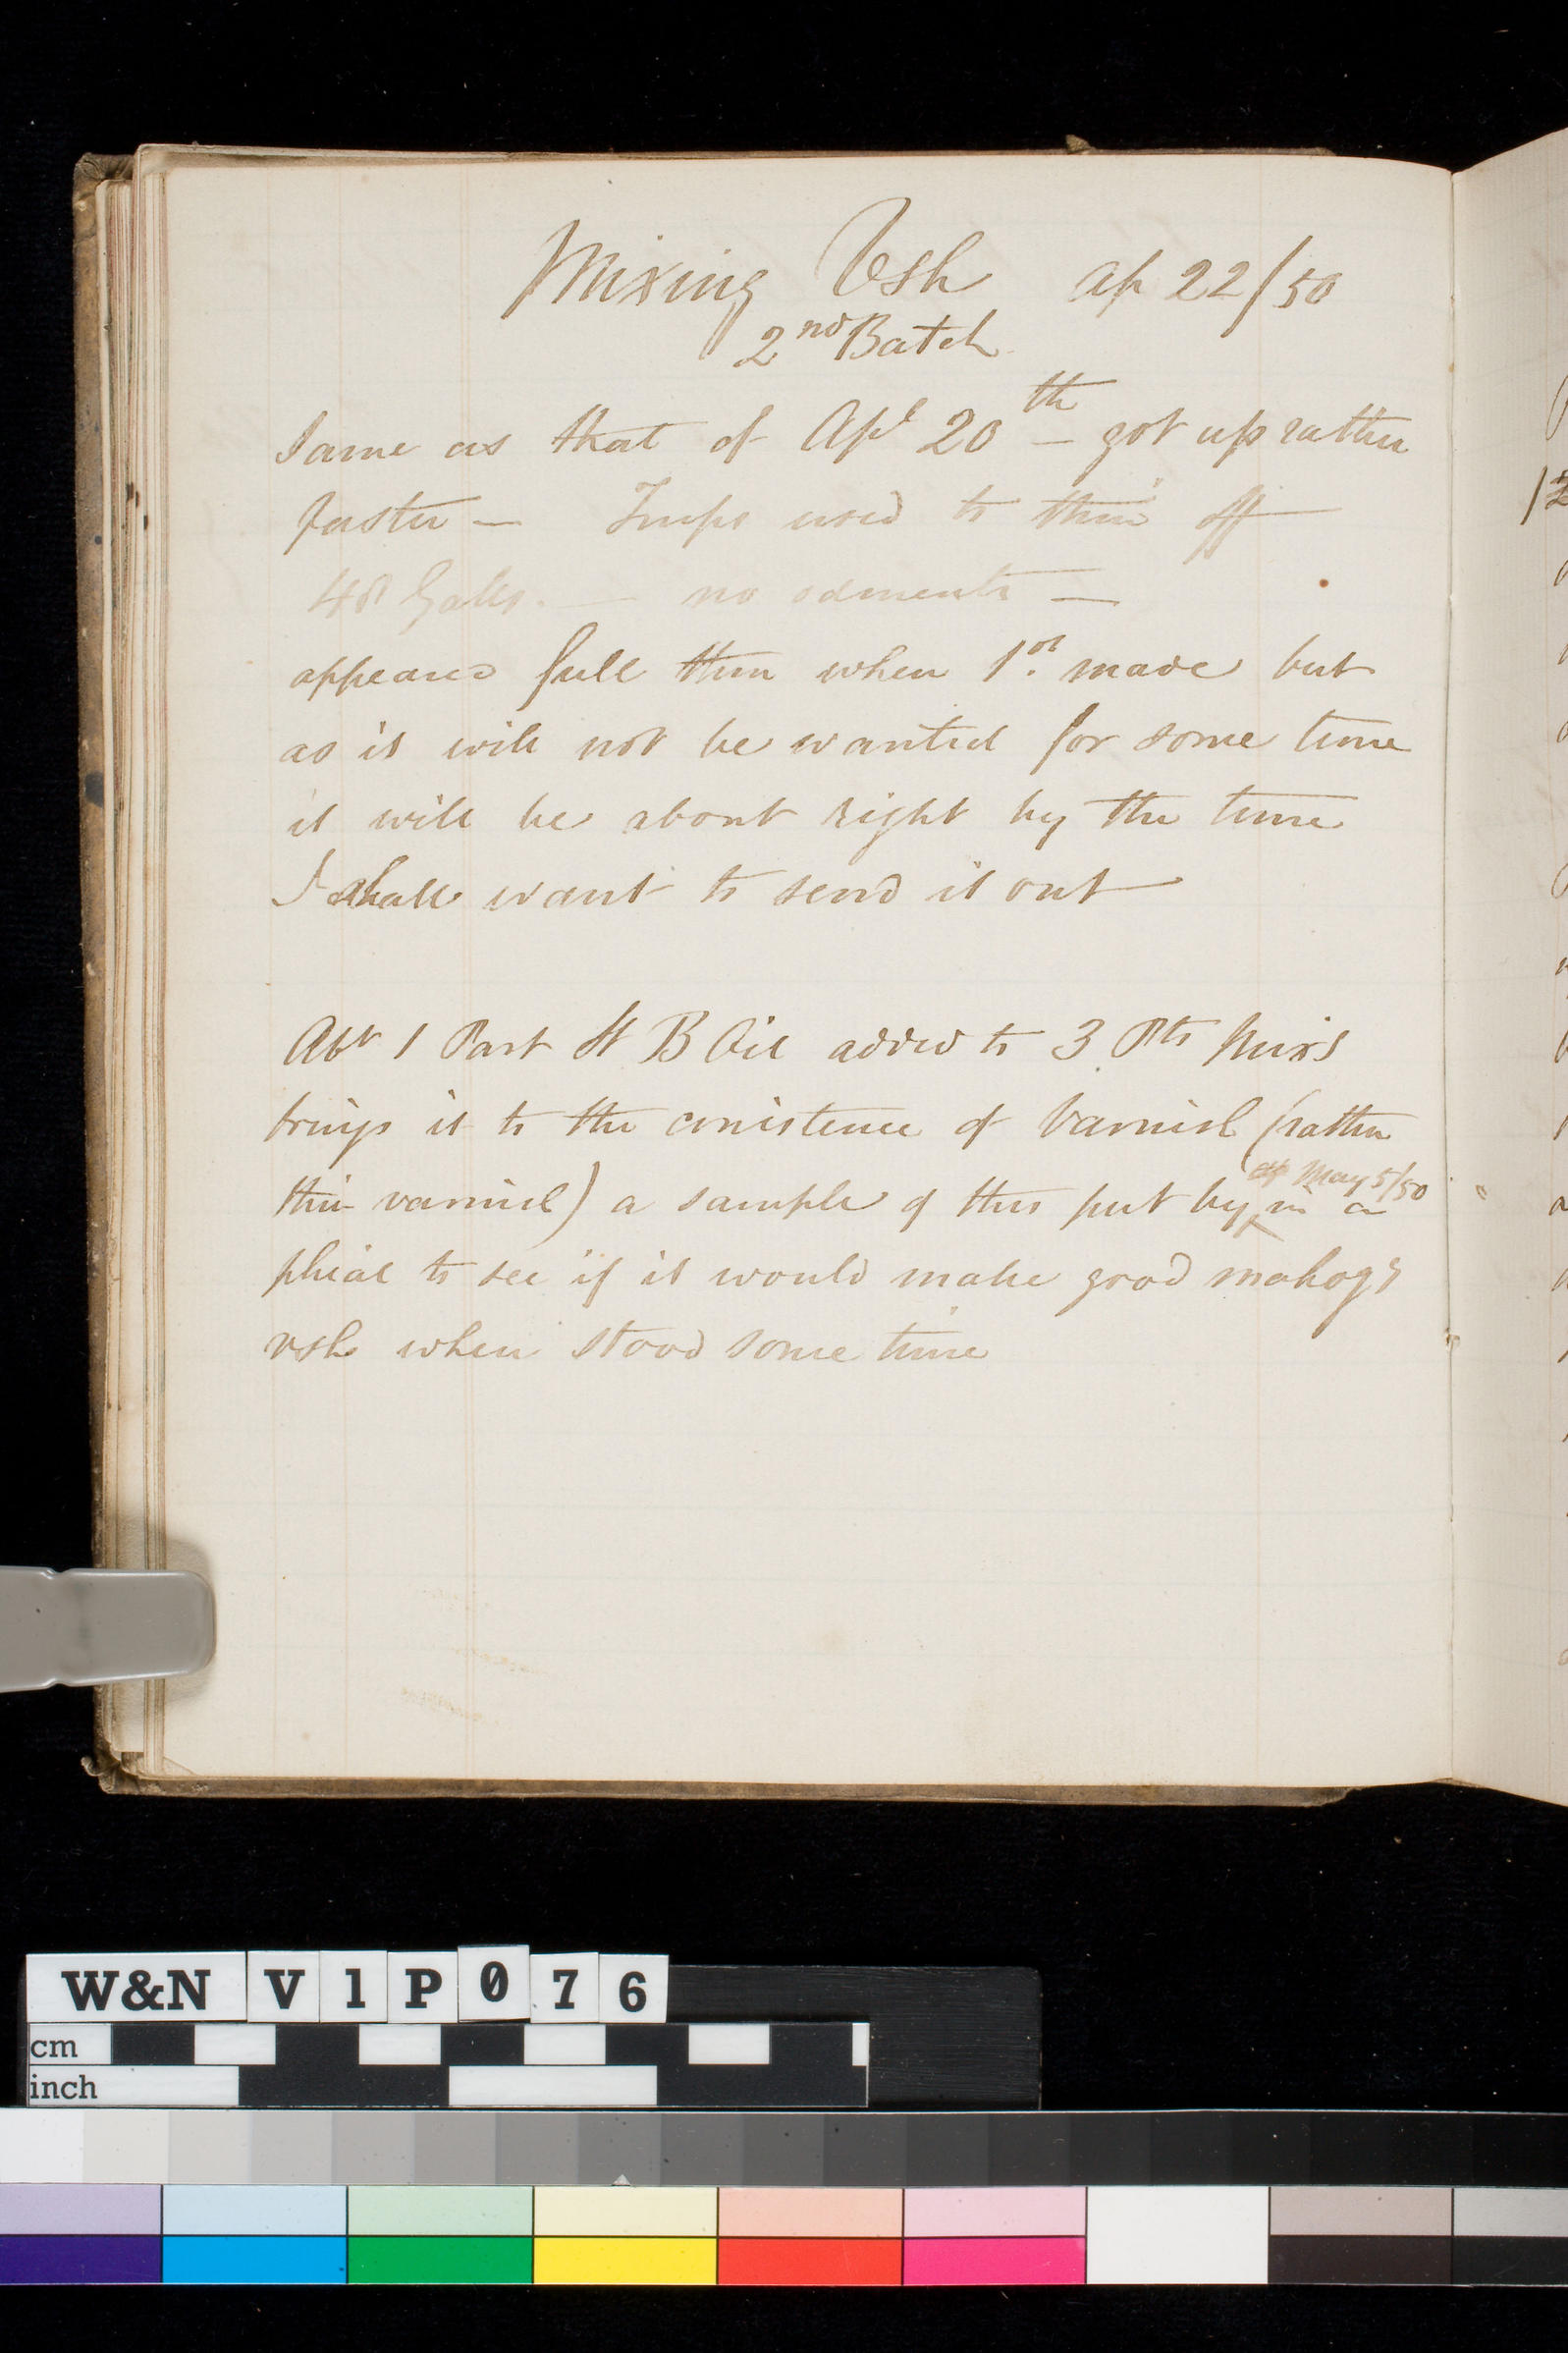 Mixing Vsh ap 22/50
2nd Batch
Same as that of Apl 20th — got up rather
faster — Turps used to thin off
48 Galls. — no sdments —
appeared full thin when 1st made but
as it will not be wanted for some time
it will be about right by the time
I shall want to send it out
Abt 1 Part St B Oil added to 3 Pts
brings it to the conistence of Varnish (rather
May 5/50
thin varnish) a sample of this put by in a
phial to see if it would make good mahogy
vsh when stood some time
W&N V1P076
cm
inch